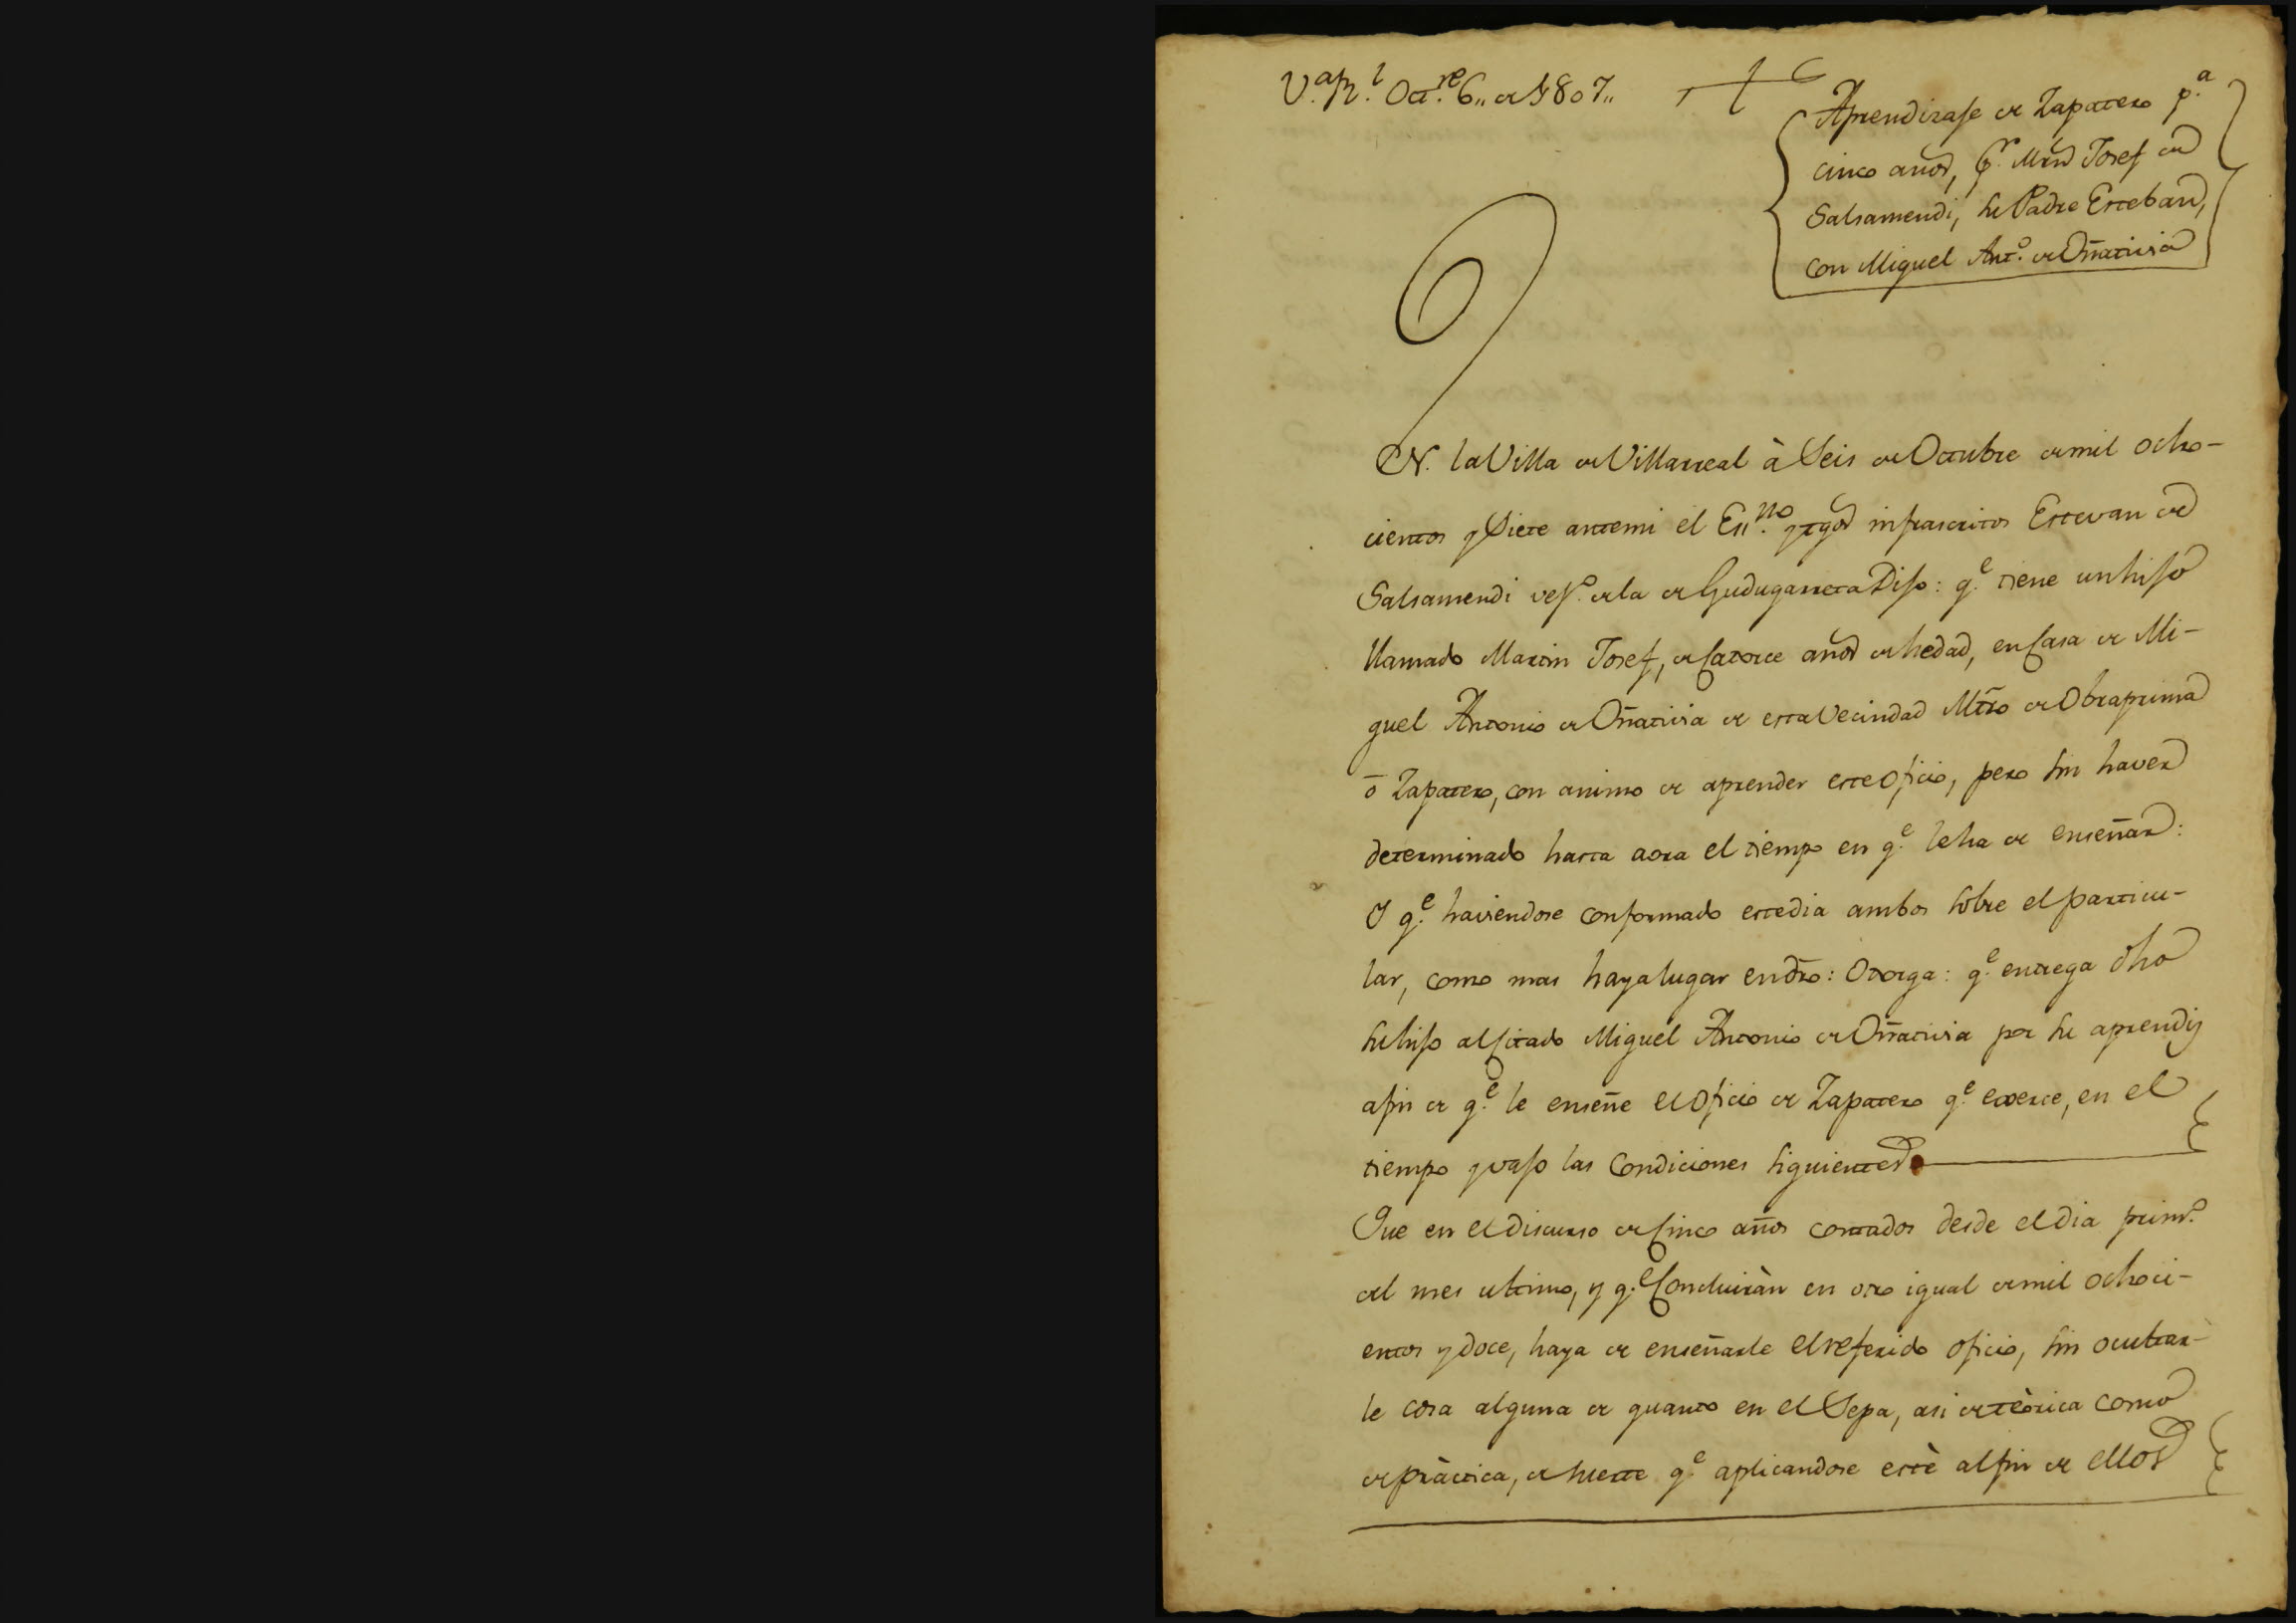 V.ª R.l Oct.re 6,, de 1807,,
Aprendizaje de Zapatero p.ª
cinco años, p.r Mrn Josef de
Salsamendi, su Padre Esteban,
con Miguel Ant.º de Oñativia
EN. la Villa de Villarreal à Seis de Octubre de mil ocho-
cientos y Siete ante mi el Ess.no y tgos infrascritos Estevan de
Salsamendi vez.º de la de Gudugarreta Dijo: q.e tiene un hijo
llamado Martin Josef, de Catorce años de hedad, en Casa de Mi-
guel Antonio de Oñativia de esta Vecindad Mtro de Obraprima
ò Zapatero, con animo de aprender este Oficio, pero sin haver
determinado hasta aora el tiempo en q.e le ha de enseñar:
Y q.e haviendose conformado este dia ambos sobre el particu-
lar, como mas haya lugar en dro: Otorga: q.e entrega dho
su hijo al Citado Miguel Antonio de Oñativia por su aprendiz
a fin de q.e le enseñe el Oficio de Zapatero q.e exerce, en el
tiempo y vajo las Condiciones siguientes
Que en el discurso de Cinco años contados desde el dia prim.º
del mes ultimo, y q.e Concluiràn en otro igual de mil ochoci-
entos y doce, haya de enseñarle el referido oficio, sin ocultar-
le cosa alguna de quanto en el Sepa, asi de teòrica como
de pràctica, de suerte q.e aplicandose estè al fin de ellos